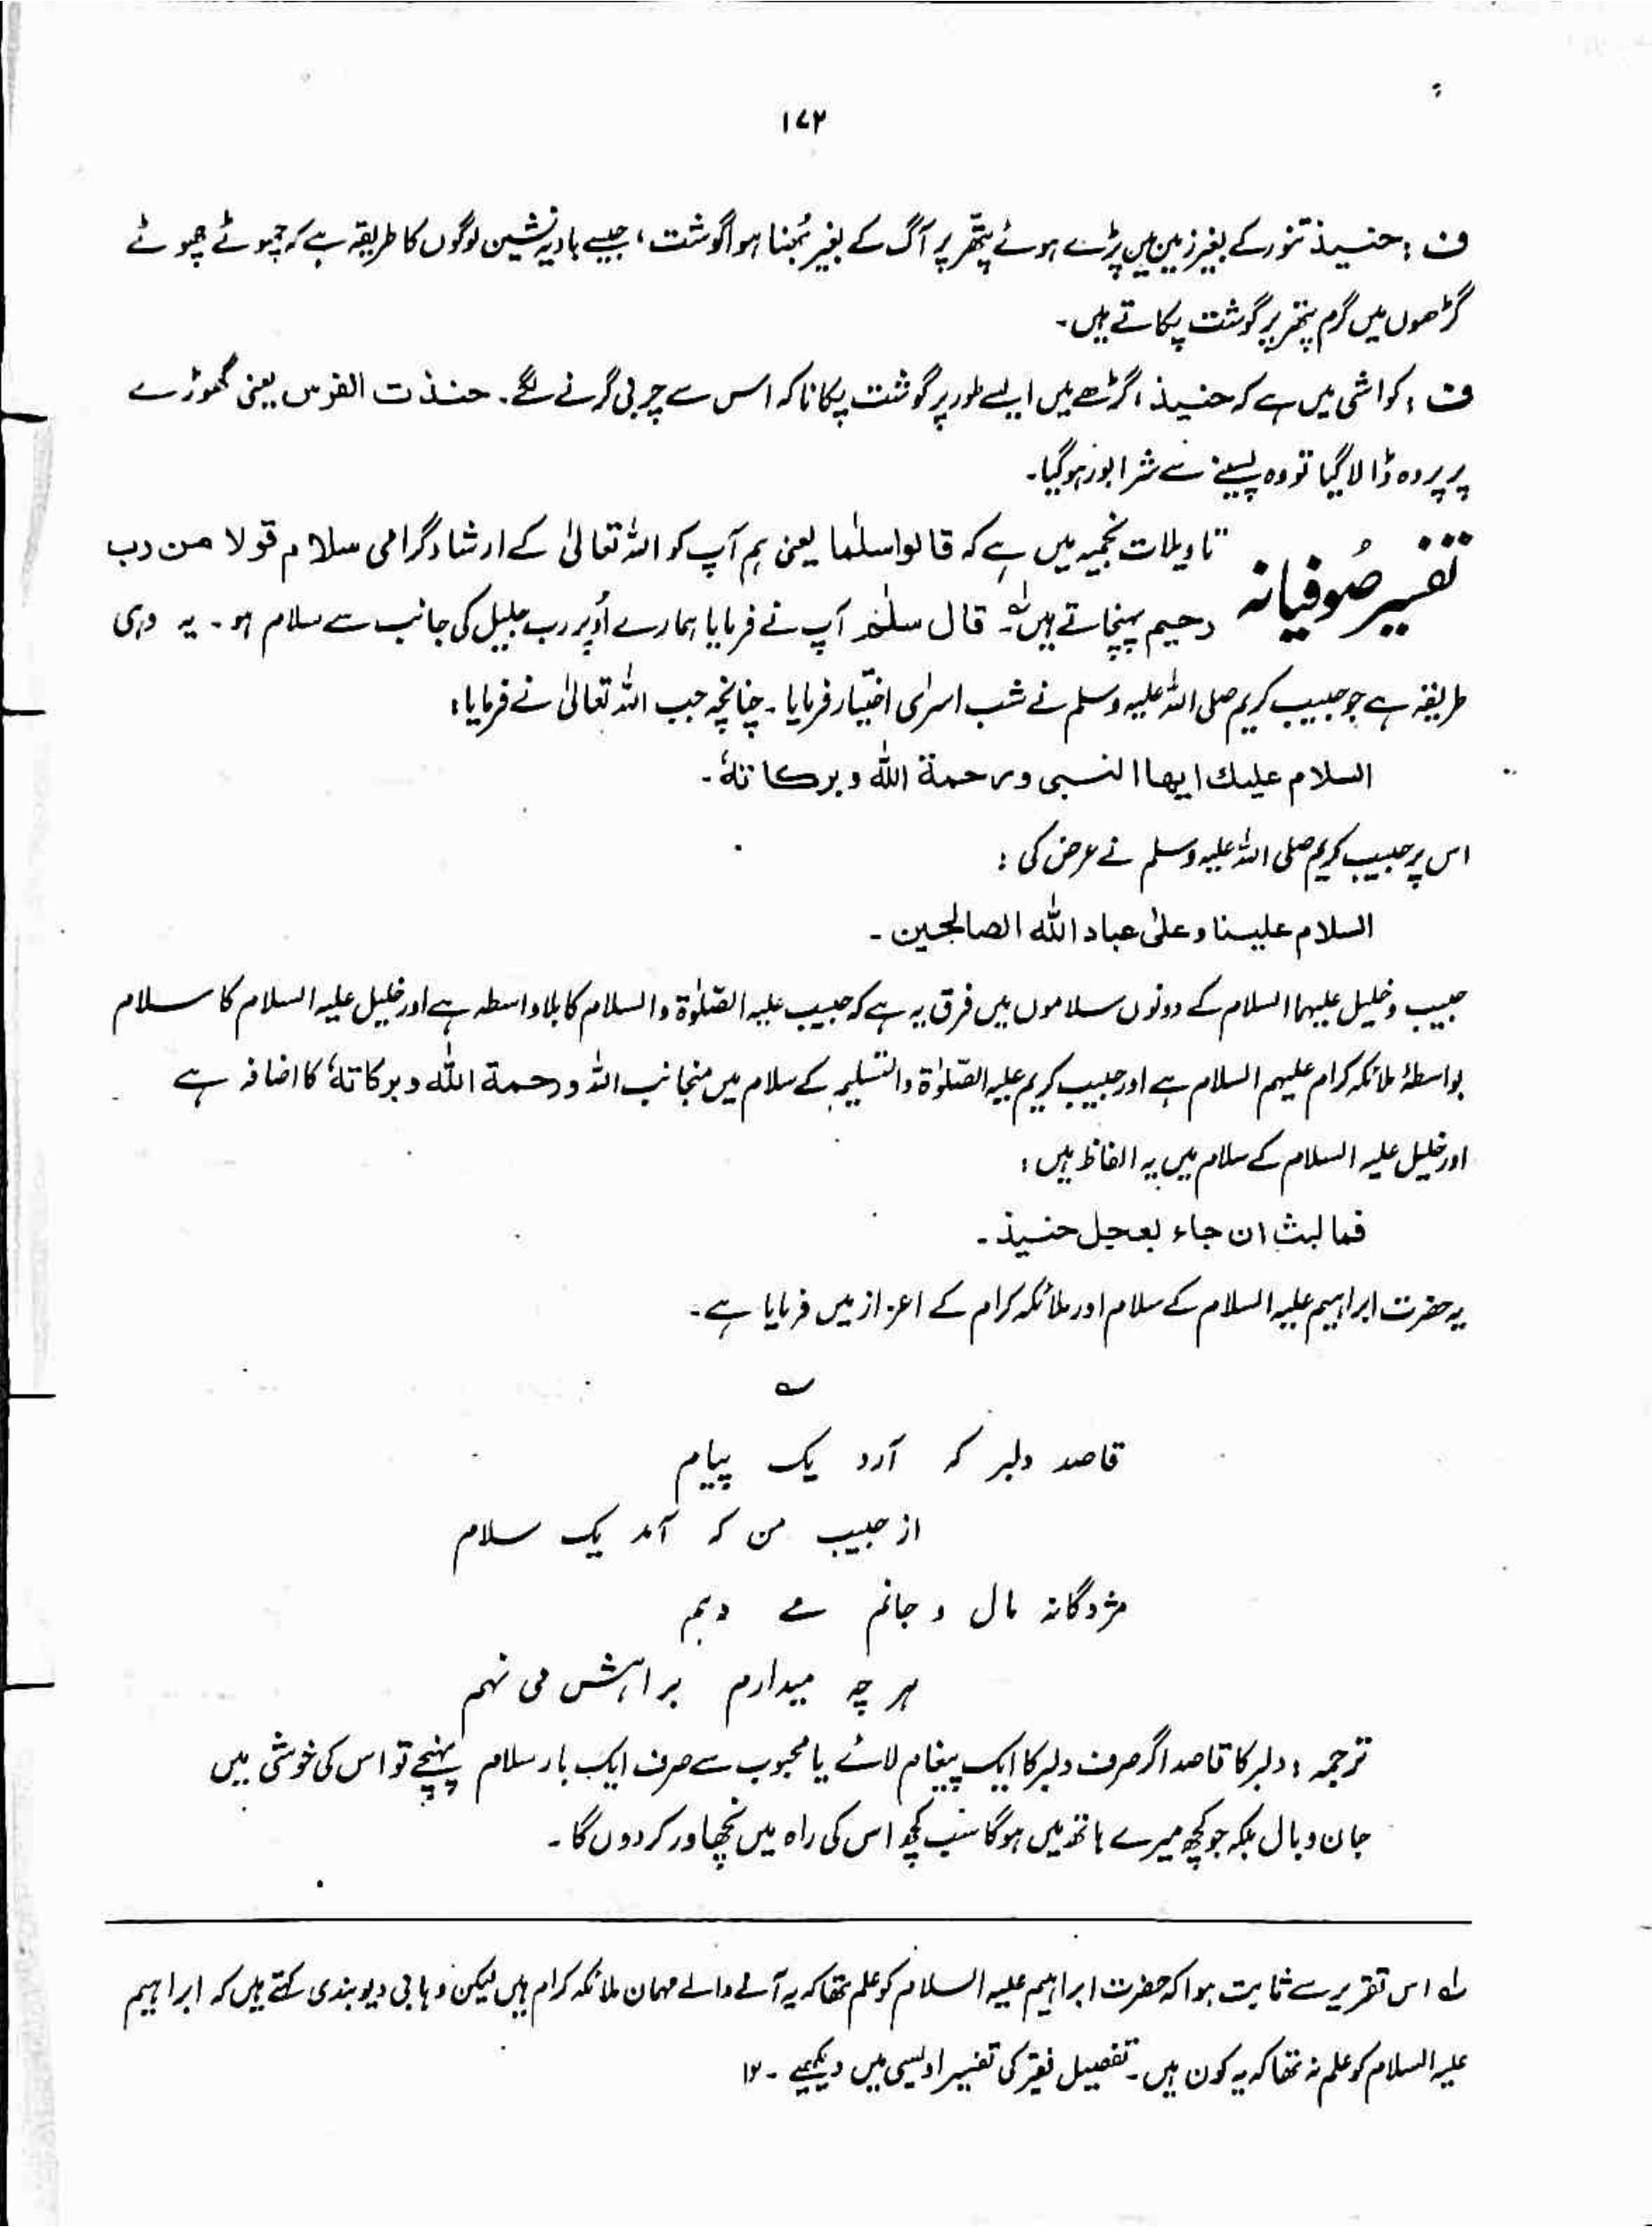 ۱۷۲
ف : حنیذ تنور کے بغیر زمین میں پڑے ہوئے پتھر پر آگ کے بغیر بُھنا ہوا گوشت ، جیسے بادیہ نشین لوگوں کا طریقہ ہے کہ چھوٹے چھوٹے
گڑھوں میں گرم پتھر پر گوشت پکاتے ہیں۔
ف : کواشی میں ہے کہ حنیذ ، گڑھے میں ایسے طور پر گوشت پکانا کہ اس سے چربی گرنے لگے۔ حنذت الفرس یعنی گھوڑے
پر پردہ ڈالا گیا تو وہ پسینے سے شرابور ہوگیا۔
تفسیر صُوفیانہ تاویلات نجمیہ میں ہے کہ قالوا سلٰما یعنی ہم آپ کو اللہ تعالیٰ کے ارشاد گرامی سلام قولا من رب
رحیم پہنچاتے ہیں لہ۔ قال سلٰم آپ نے فرمایا ہمارے اُوپر رب جلیل کی جانب سے سلام ہو۔ یہ وہی
طریقہ ہے جو حبیب کریم صلی اللہ علیہ وسلم نے شب اسرٰی اختیار فرمایا۔ چنانچہ جب اللہ تعالیٰ نے فرمایا :
السلام علیك ایها النبی ورحمة اللّٰه وبرکاتهٗ۔
اس پر حبیب کریم صلی اللہ علیہ وسلم نے عرض کی :
السلام علینا وعلیٰ عباد اللّٰه الصالحین۔
حبیب و خلیل علیہما السلام کے دونوں سلاموں میں فرق یہ ہے کہ حبیب علیہ الصّلوٰۃ والسلام کا بلاواسطہ ہے اور خلیل علیہ السلام کا سلام
بواسطۂ ملائکہ کرام علیہم السلام ہے اور حبیب کریم علیہ الصّلوٰۃ والتسلیم کے سلام میں منجانب اللہ ورحمة اللّٰه وبرکاتهٗ کا اضافہ ہے
اور خلیل علیہ السلام کے سلام میں یہ الفاظ ہیں :
فما لبث ان جاء بعجل حنیذ۔
یہ حضرت ابراہیم علیہ السلام کے سلام اور ملائکہ کرام کے اعزاز میں فرمایا ہے۔
؎
قاصد دلبر کہ آرد یک پیام
از حبیب من کہ آمد یک سلام
مژدگانہ مال و جانم مے دہم
ہر چہ میدارم براہش می نہم
ترجمہ : دلبر کا قاصد اگر صرف دلبر کا ایک پیغام لائے یا محبوب سے صرف ایک بار سلام پہنچے تو اس کی خوشی میں
جان و مال بلکہ جو کچھ میرے ہاتھ میں ہوگا سب کچھ اس کی راہ میں نچھاور کر دوں گا۔
لہ اس تقریر سے ثابت ہوا کہ حضرت ابراہیم علیہ السلام کو علم تھا کہ یہ آنے والے مہمان ملائکہ کرام ہیں لیکن وہابی دیوبندی کہتے ہیں کہ ابراہیم
علیہ السلام کو علم نہ تھا کہ یہ کون ہیں۔ تفصیل فقیر کی تفسیر اویسی میں دیکھیے۔ ۱۲